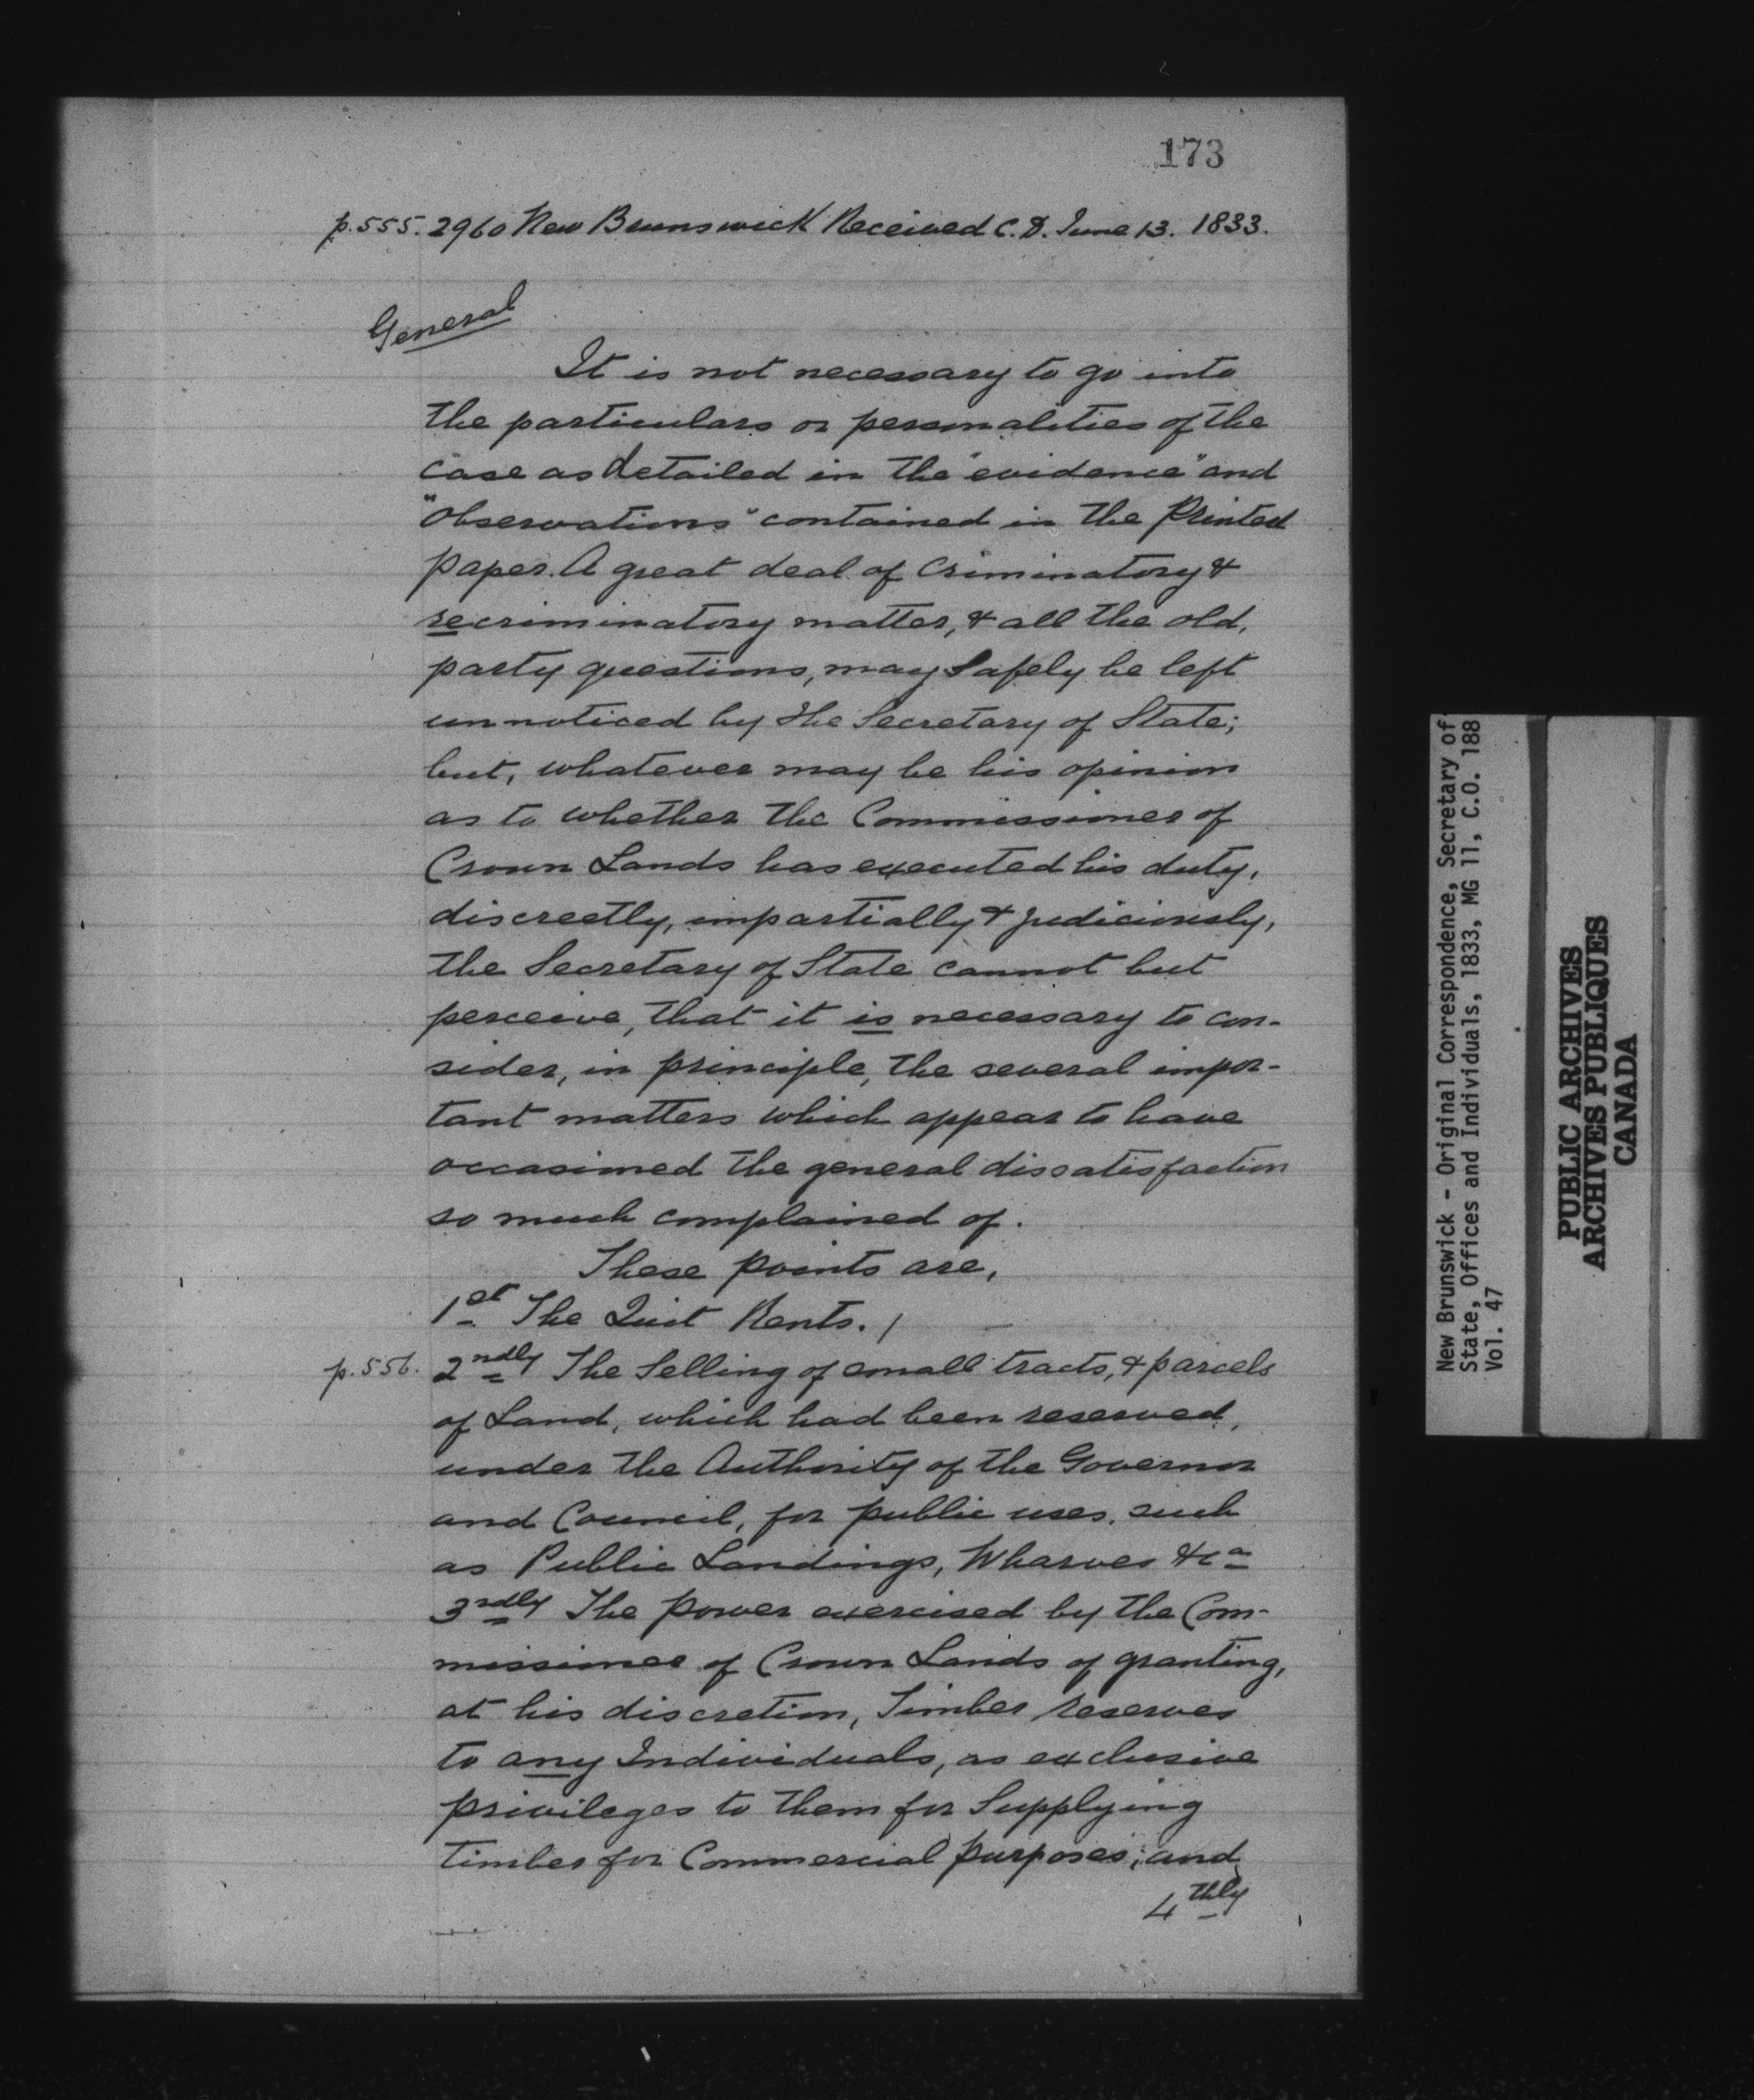 173
p. 555. 2960 New Brunswick Received C.D. June 13. 1833.
General
It is not necessary to go into
the particulars or personalities of the
case as detailed in the "evidence" and
"observations" contained in the Printed
paper. A great deal of Criminatory &
recriminatory matter, & all the old,
party questions, may safely be left
unnoticed by the Secretary of State;
but, whatever may be his opinion
as to whether the Commissioner of
Crown Lands has executed his duty,
discreetly, impartially & judiciously,
the Secretary of State cannot but
perceive, that it is necessary to con-
sider, in principle, the several impor-
tant matters which appear to have
occasioned the general dissatisfaction
so much complained of.
These points are,
1st The Quit Rents. /
p. 556. 2ndly The Selling of small tracts, & parcels
of Land, which had been reserved,
under the Authority of the Governor
and Council, for public uses, such
as Public Landings, Wharves &ca
3rdly The power exercised by the Com-
missioner of Crown Lands of granting,
at his discretion, Timber reserves
to any Individuals, as exclusive
privileges to them for Supplying
Timber for Commercial purposes; and
4thly
New Brunswick - Original Correspondence, Secretary of
State, Offices and Individuals, 1833, MG 11, C.O. 188
Vol. 47
PUBLIC ARCHIVES
ARCHIVES PUBLIQUES
CANADA